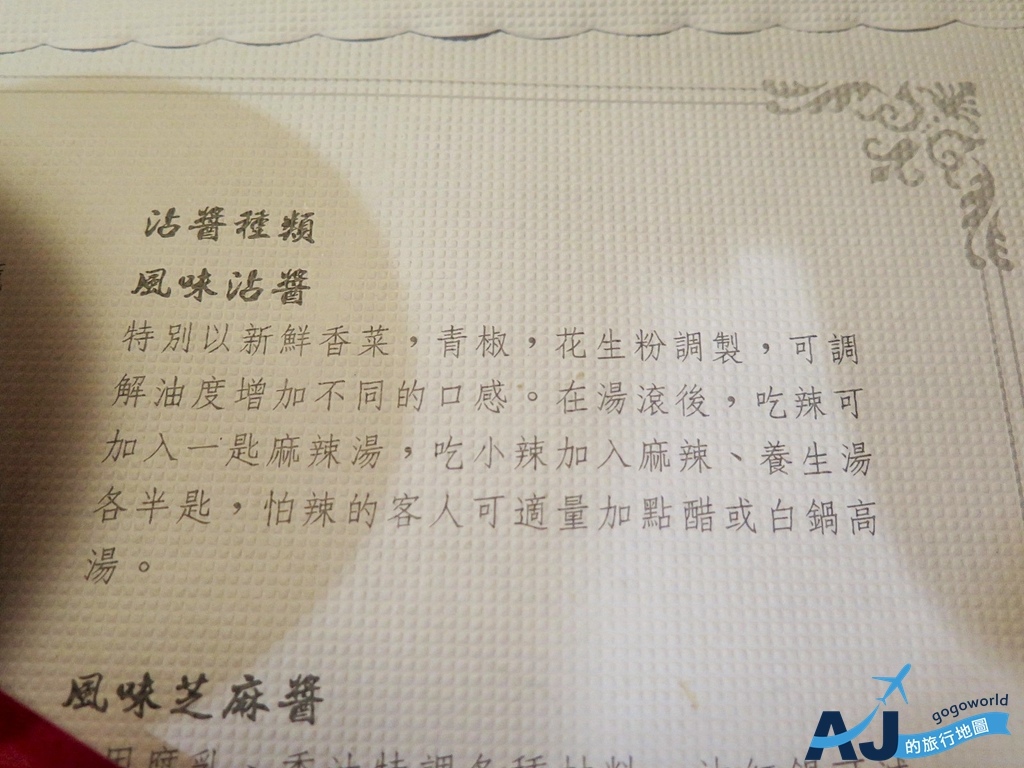 沾醬種類
風味沾醬
特別以新鮮香菜,青椒,花生粉調製,可調
解油度增加不同的口感。在湯滾後,吃辣可
加入一匙麻辣湯,吃小辣加入麻辣、養生湯
各半匙,怕辣的客人可適量加點醋或白鍋高
湯。
風味芝麻醬
用腐乳、香油特調各種
gogoworld
AJ的旅行地圖